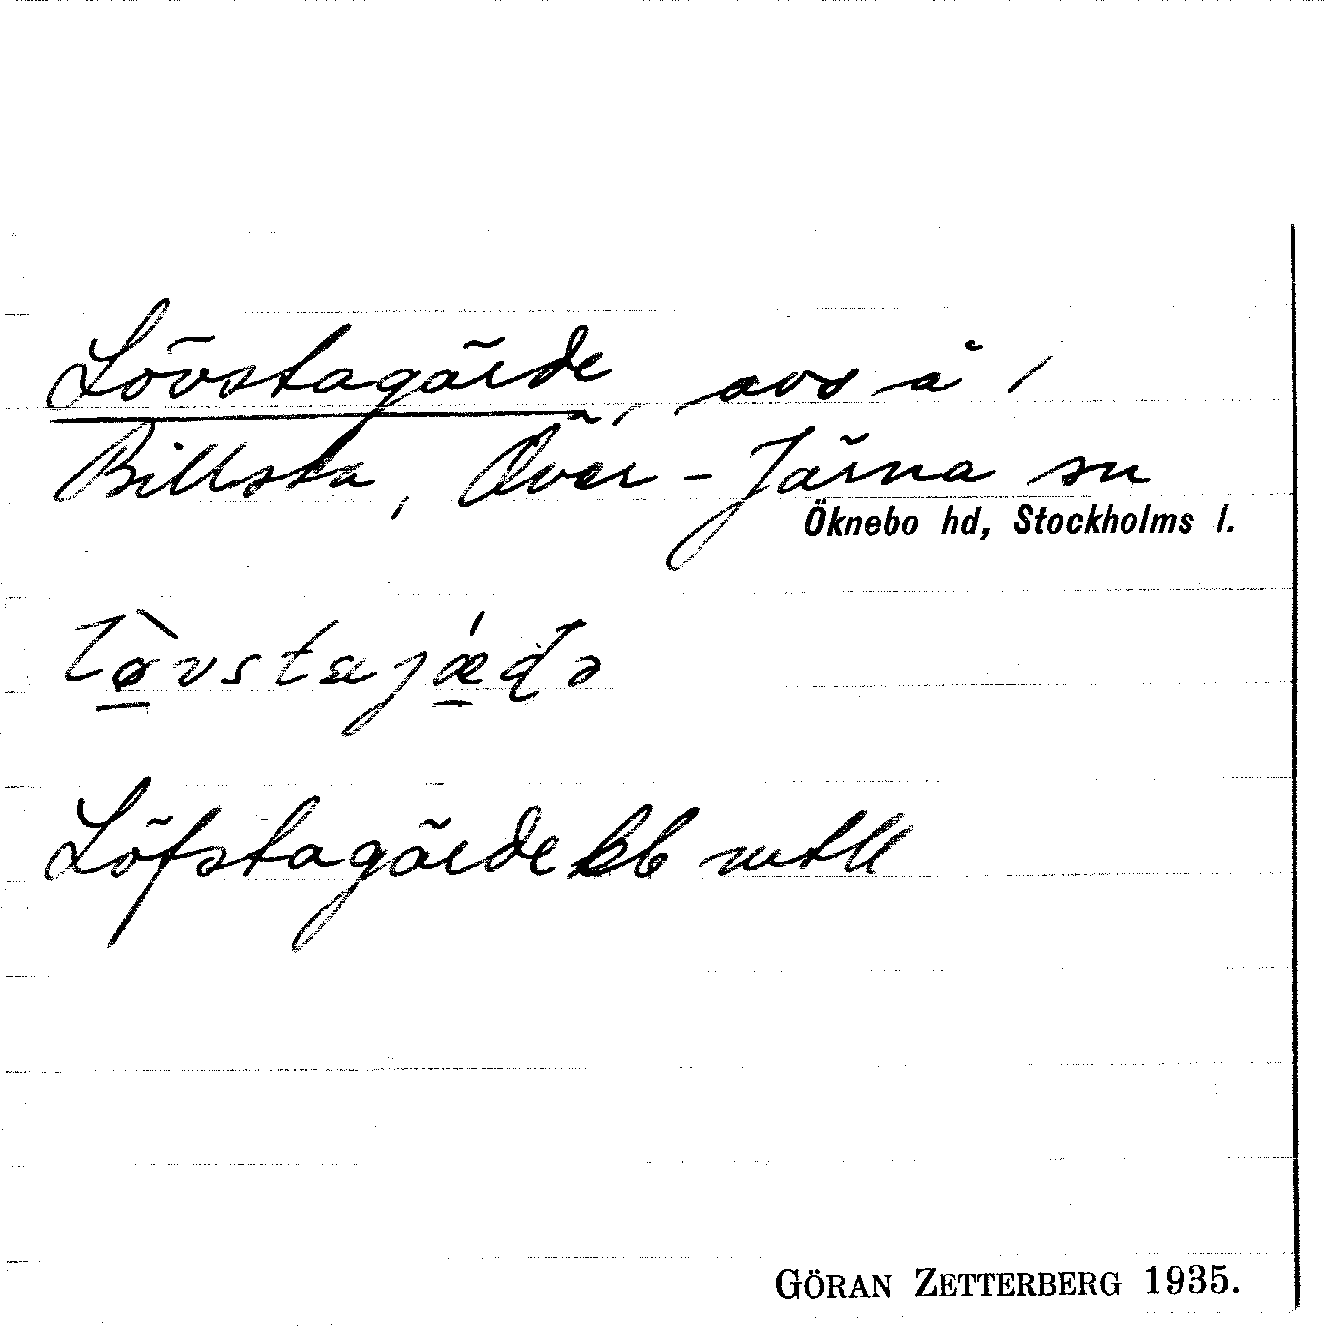 Lövstagärde, avs å /
Billsta, Över-Järna sn
Öknebo hd, Stockholms l.
lø̀vstajǽḍə
Löfstagärde kb mtll
GÖRAN ZETTERBERG 1935.